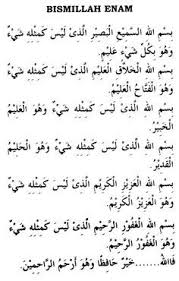 BISMILLAH ENAM
بِسْمِ اللهِ السَّمِيْعِ الْبَصِيْرِ الَّذِىْ لَيْسَ كَمِثْلِهِ شَيْءٌ
وَهُوَ بِكُلِّ شَيْءٍ عَلِيْمٌ.
بِسْمِ اللهِ الْخَلَّاقِ الْعَلِيْمِ الَّذِىْ لَيْسَ كَمِثْلِهِ شَيْءٌ
وَهُوَ الْفَتَّاحُ الْعَلِيْمُ.
بِسْمِ اللهِ الَّذِىْ لَيْسَ كَمِثْلِهِ شَيْءٌ وَهُوَ الْعَلِيْمُ
الْخَبِيْرُ.
بِسْمِ اللهِ الَّذِىْ لَيْسَ كَمِثْلِهِ شَيْءٌ وَهُوَ
الْقَدِيْرُ.
بِسْمِ اللهِ الْعَزِيْزِ الْكَرِيْمِ الَّذِىْ لَيْسَ كَمِثْلِهِ شَيْءٌ
وَهُوَ الْعَزِيْزُ
بِسْمِ اللهِ الْغَفُوْرِ الرَّحِيْمِ الَّذِىْ لَيْسَ كَمِثْلِهِ شَيْءٌ
وَهُوَ الْغَفُوْرُ الرَّحِيْمُ.
فَاللهُ......خَيْرٌ حَافِظًا وَهُوَ أَرْحَمُ الرَّاحِمِيْنَ.